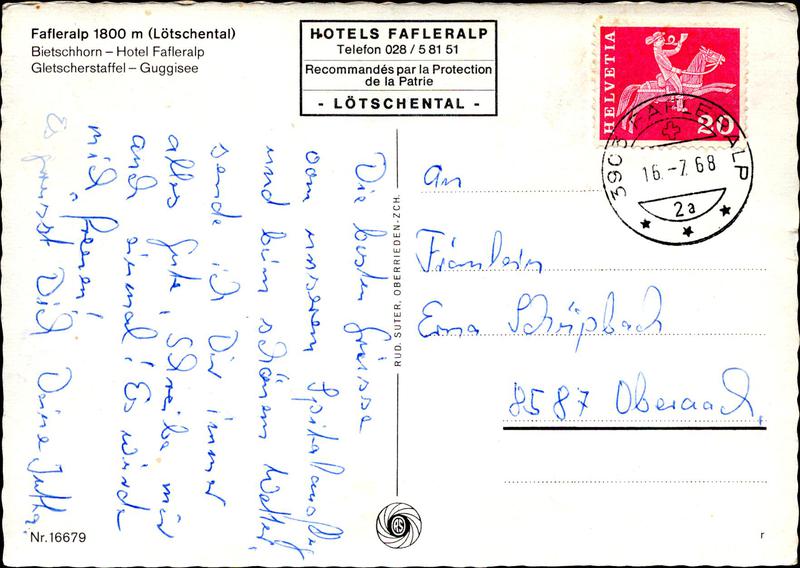 Fafleralp 1800 m (Lötschental)
Bietschhorn – Hotel Fafleralp
Gletscherstaffel – Guggisee
HOTELS FAFLERALP
Telefon 028 / 5 81 51
Recommandés par la Protection
de la Patrie
- LÖTSCHENTAL -
HELVETIA
20
3903 FAFLERALP
16.-7.68
2a
Die besten Grüsse
vom unserem
und beim schönem Wetter
sende ich Dir immer
alles Gute, Schreibe mir
auch einmal! Es würde
mich freuen!
Es grüsst Dich Deine Jutta.
RUD. SUTER, OBERRIEDEN-ZCH.
An
Fräulein
Erna Schüpbach
8587 Oberaach.
RS
Nr. 16679
r